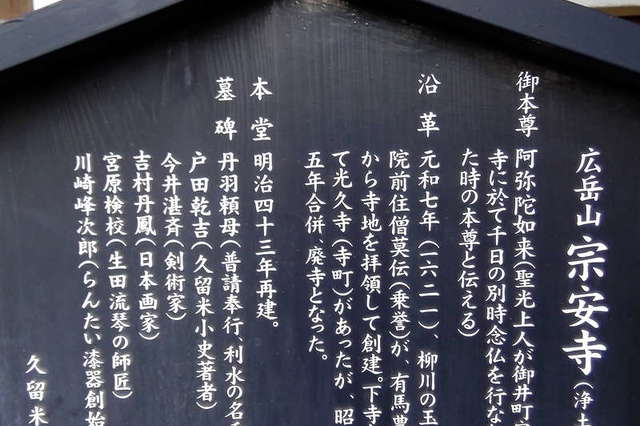 広岳山 宗安寺（浄土
御本尊 阿弥陀如来（聖光上人が御井町
寺に於て千日の別時念仏を行な
た時の本尊と伝える）
沿革 元和七年（一六二一）、柳川の玉
院前住僧莫伝（乗誉）が、有馬豊
から寺地を拝領して創建。下寺
て光久寺（寺町）があったが、昭
五年合併、廃寺となった。
本堂 明治四十三年再建。
墓碑 丹羽頼母（普請奉行、利水の名手
戸田乾吉（久留米小史著者）
今井湛斉（剣術家）
吉村丹鳳（日本画家）
宮原検校（生田流琴の師匠）
川崎峰次郎（らんたい漆器創始
久留米